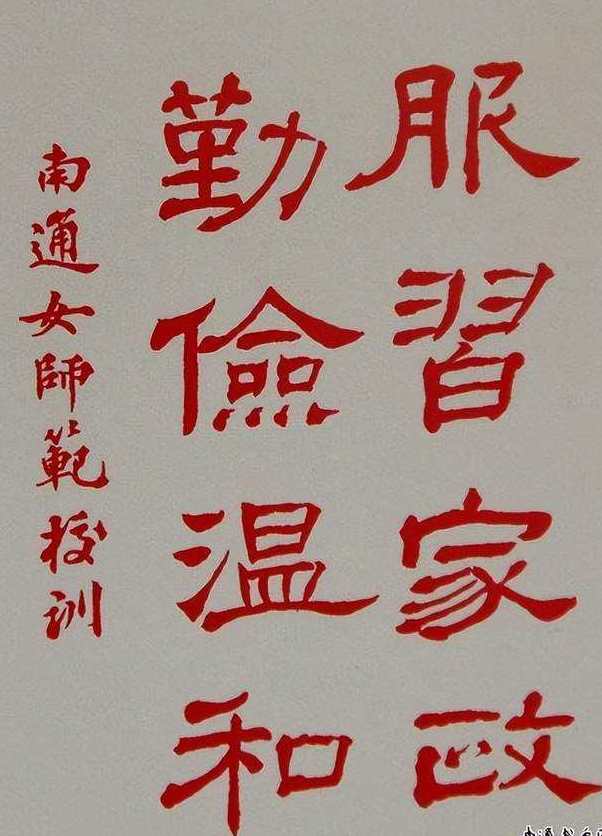 服習家政
勤儉温和
南通女師範校訓